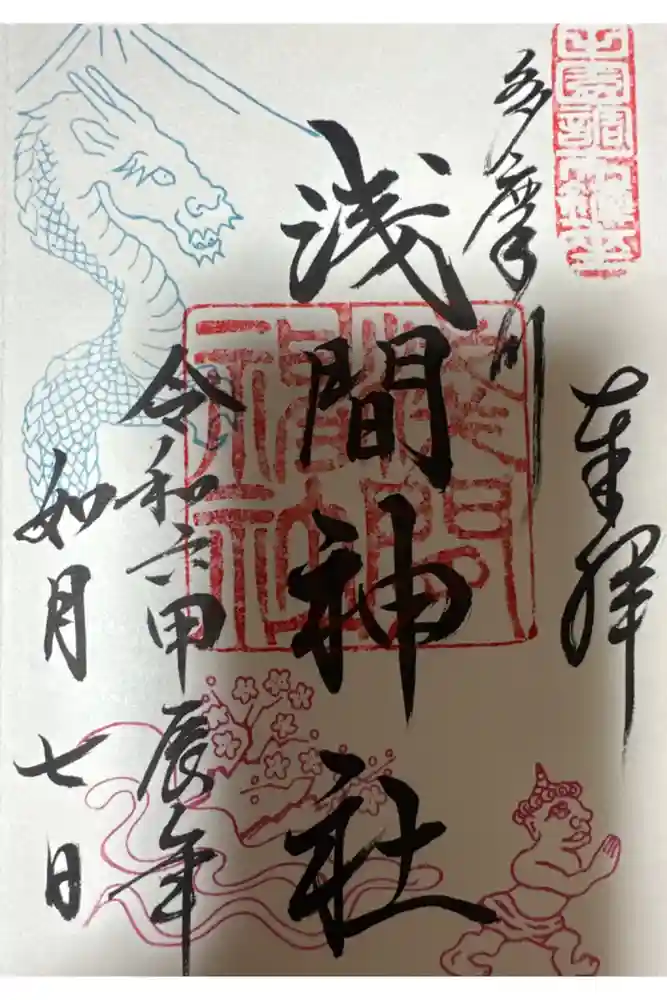 奉拝
多摩川
浅間神社
令和六甲辰年
如月
七日